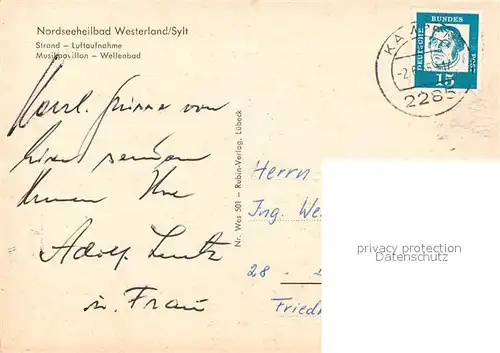 Nordseeheilbad Westerland/Sylt
Strand – Luftaufnahme
Musikpavillon – Wellenbad
Herzl. Grüsse von
hier senden
Ihnen Ihre
Adolf Lentz
u. Frau
Nr. Wes 501 – Rubin-Verlag, Lübeck
DEUTSCHE BUNDESPOST
15
KAMPEN
2285
Herrn
Ing. We
28 -
Friedr
privacy protection
Datenschutz